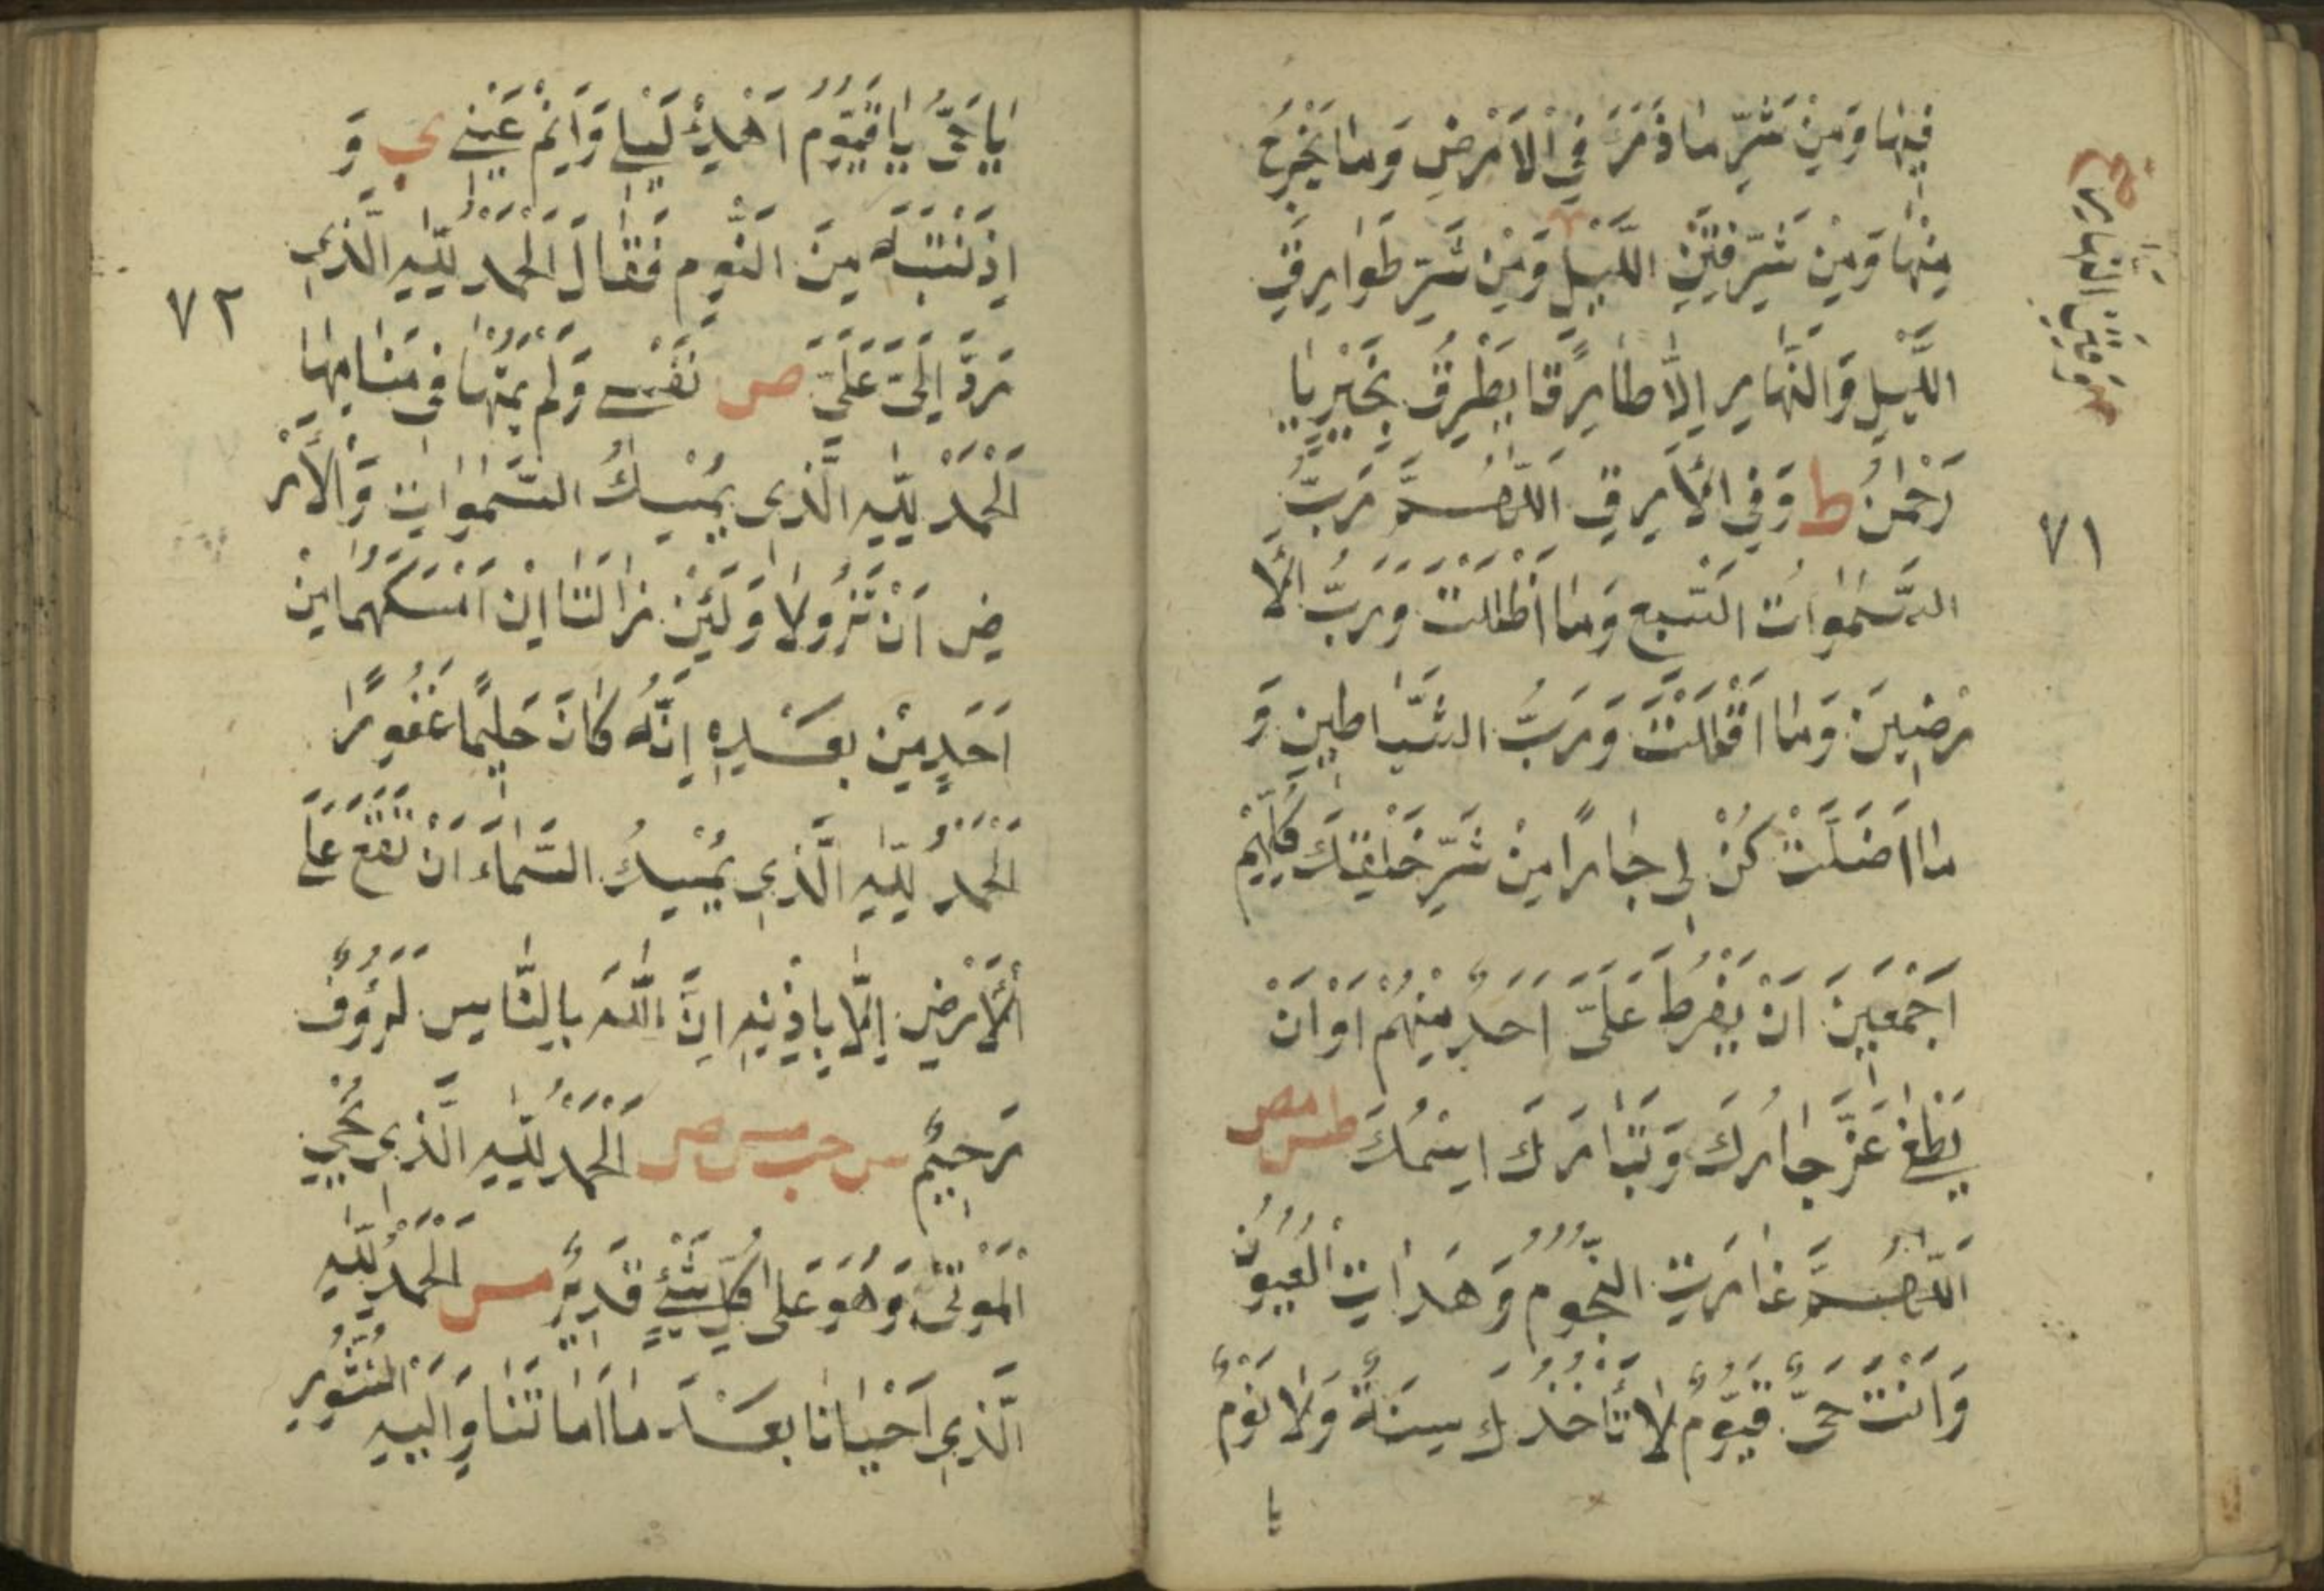 فِيهَا وَمِنْ شَرِّ مَا ذَرَءَ فِي الْاَرْضِ وَمَا يَخْرُجُ
مِنْهَا وَمِنْ شَرِّ فِتَنِ اللَّيْلِ وَمِنْ شَرِّ طَوَارِقِ
اللَّيْلِ وَالنَّهَارِ اِلَّا طَارِقًا يَطْرُقُ بِخَيْرٍ يَا
رَحْمٰنُ ط وَفِي الْاَرَقِ اَللّٰهُمَّ رَبَّ
السَّمٰوَاتِ السَّبْعِ وَمَا اَظَلَّتْ وَرَبَّ الْاَ
رْضِينَ وَمَا اَقَلَّتْ وَرَبَّ الشَّيَاطِينِ وَ
مَا اَضَلَّتْ كُنْ لِي جَارًا مِنْ شَرِّ خَلْقِكَ كُلِّهِمْ
اَجْمَعِينَ اَنْ يَفْرُطَ عَلَيَّ اَحَدٌ مِنْهُمْ اَوْ اَنْ
يَطْغٰى عَزَّ جَارُكَ وَتَبَارَكَ اسْمُكَ طس مص
اَللّٰهُمَّ غَارَتِ النُّجُومُ وَهَدَاَتِ الْعُيُونُ
وَاَنْتَ حَيٌّ قَيُّومٌ لَا تَأْخُذُكَ سِنَةٌ وَلَا نَوْمٌ
يا
٧١
يَا حَيُّ يَا قَيُّومُ اَهْدِئْ لَيْلِي وَاَنِمْ عَيْنِي ي وَ
اِذَنْتَبَهَ مِنَ النَّوْمِ فَقَالَ اَلْحَمْدُ لِلّٰهِ الَّذِي
رَدَّ اِلَيَّ عَلَيَّ ص نَفْسِي وَلَمْ يُمِتْهَا فِي مَنَامِهَا
اَلْحَمْدُ لِلّٰهِ الَّذِي يُمْسِكُ السَّمٰوَاتِ وَالْاَرْ
ضِ اَنْ تَزُولَا وَلَئِنْ زَالَتَا اِنْ اَمْسَكَهُمَا مِنْ
اَحَدٍ مِنْ بَعْدِهِ اِنَّهُ كَانَ حَلِيمًا غَفُورًا
اَلْحَمْدُ لِلّٰهِ الَّذِي يُمْسِكُ السَّمَاءَ اَنْ تَقَعَ عَلَى
الْاَرْضِ اِلَّا بِاِذْنِهِ اِنَّ اللّٰهَ بِالنَّاسِ لَرَؤُوفٌ
رَحِيمٌ س حب مس ص اَلْحَمْدُ لِلّٰهِ الَّذِي يُحْيِي
الْمَوْتٰى وَهُوَ عَلٰى كُلِّ شَيْءٍ قَدِيرٌ مس اَلْحَمْدُ لِلّٰهِ
الَّذِي اَحْيَانَا بَعْدَ مَا اَمَاتَنَا وَاِلَيْهِ النُّشُورُ
٧٢